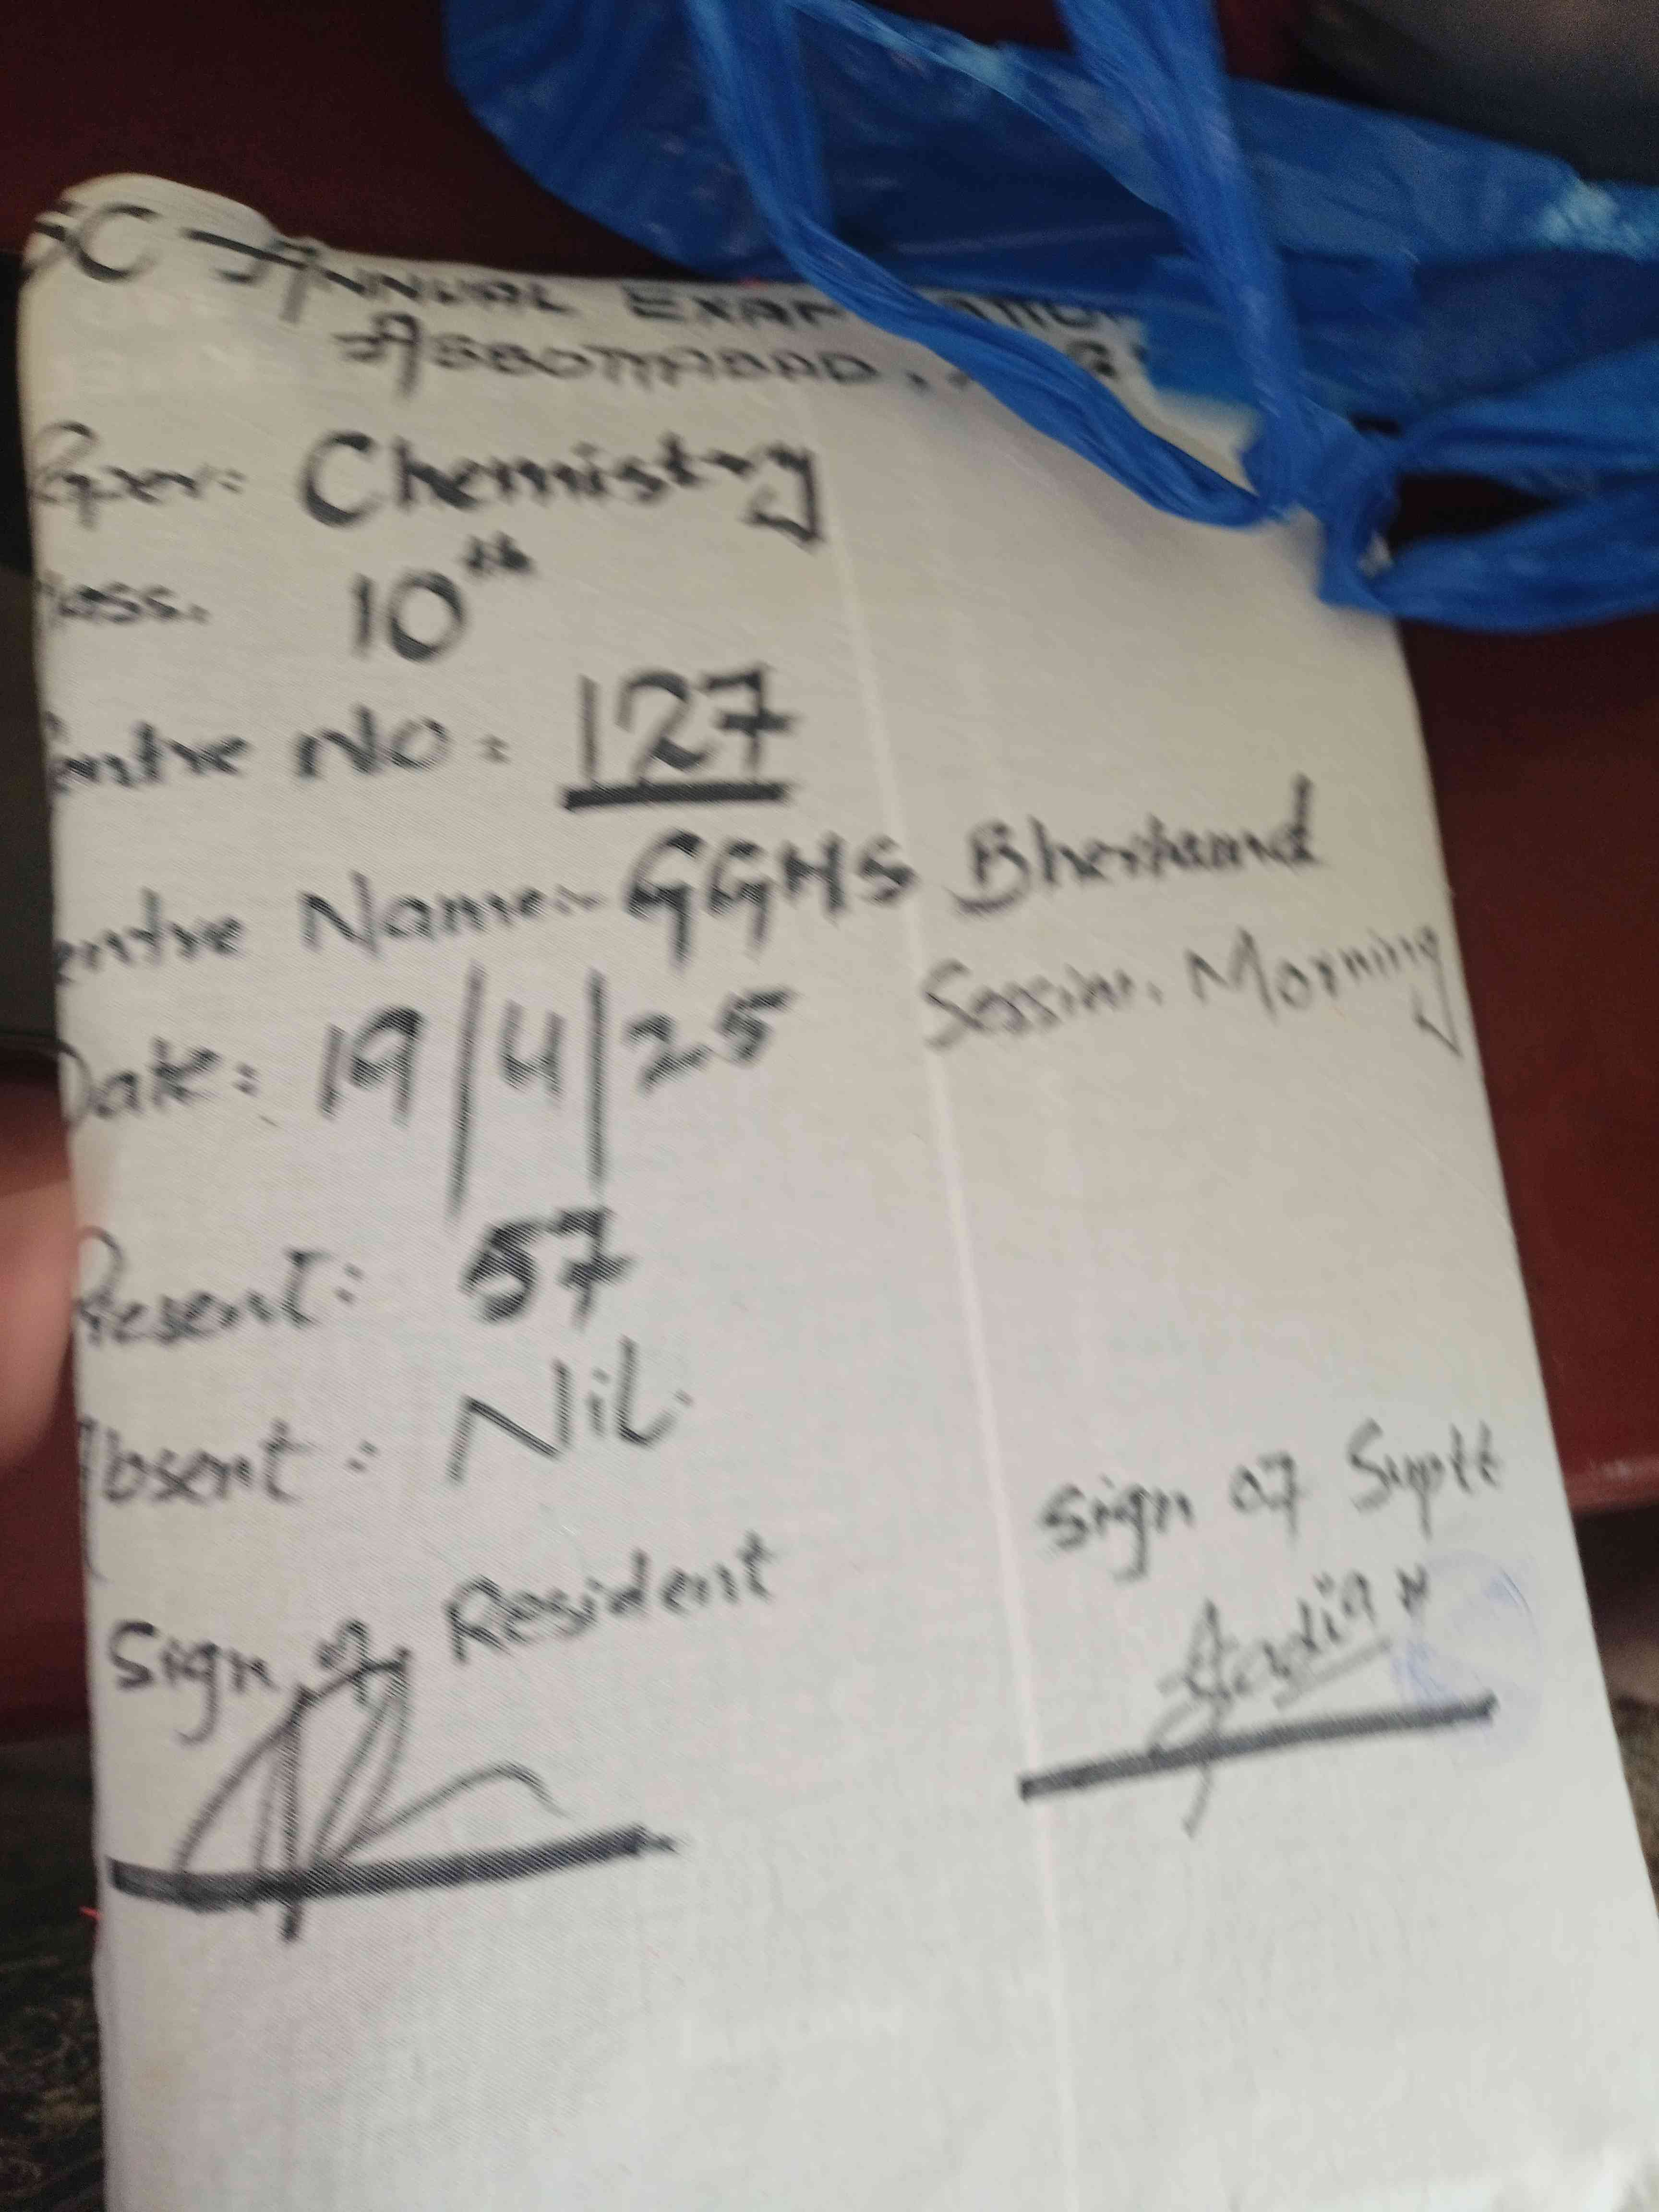 SC ANNUAL
ABBOTTABAD,
Paper: Chemistry
Class. 10th
Centre No: 127
Centre Name:- GGHS Bherkund
Date: 19/4/25 Session. Morning
Present: 57
Absent: Nil.
Sign of Resident
Sign of Suptt